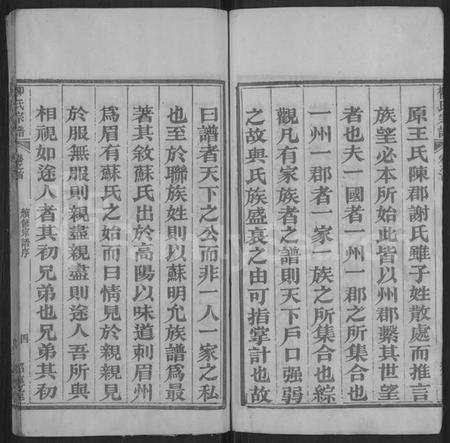 原王氏陳郡謝氏雖子姓散處而推言
族望必本所始此皆以州郡繫其世望
者也夫一國者一州一郡之所集合也
一州一郡者一家一族之所集合也綜
觀凡有家族者之譜則天下戶口强弱
之故與氏族盛衰之由可指掌計也故
曰譜者天下之公而非一人一家之私
也至於聯族姓則以蘇明允族譜爲最
著其敘蘇氏出於高陽以味道刺眉州
爲眉有蘇氏之始而曰情見於親親見
於服無服則親盡親盡則途人吾所與
相視如途人者其初兄弟也兄弟其初
柳氏宗譜
卷之首
續修宗譜序
四